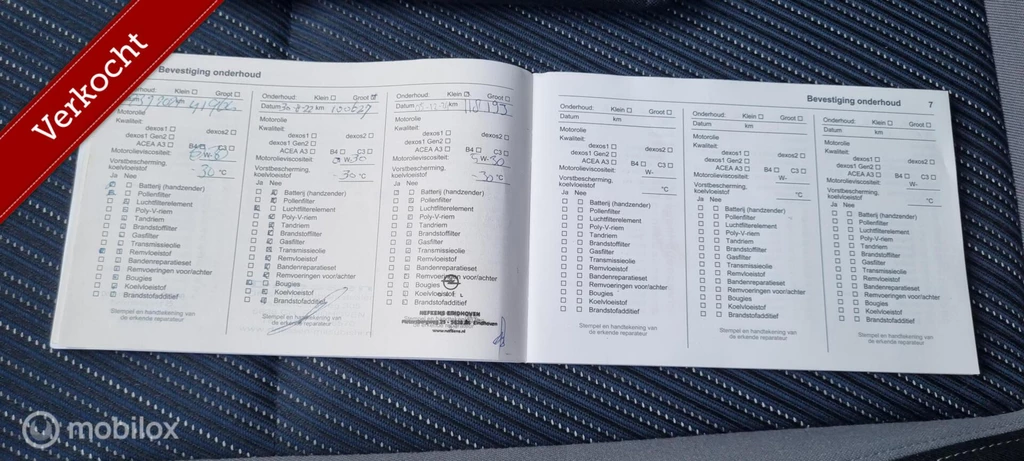 Verkocht
Bevestiging onderhoud
Onderhoud: Klein Groot
Datum km
Motorolie
Kwaliteit:
dexos1 dexos2
dexos1 Gen2
ACEA A3 B4 C3
Motorolieviscositeit: W-30
Vorstbescherming,
koelvloeistof -30 °C
Ja Nee
Batterij (handzender)
Pollenfilter
Luchtfilterelement
Poly-V-riem
Tandriem
Brandstoffilter
Gasfilter
Transmissieolie
Remvloeistof
Bandenreparatieset
Remvoeringen voor/achter
Bougies
Koelvloeistof
Brandstofadditief
Stempel en handtekening van
de erkende reparateur
Onderhoud: Klein Groot
Datum km
Motorolie
Kwaliteit:
dexos1 dexos2
dexos1 Gen2
ACEA A3 B4 C3
Motorolieviscositeit: W-30
Vorstbescherming,
koelvloeistof -30 °C
Ja Nee
Batterij (handzender)
Pollenfilter
Luchtfilterelement
Poly-V-riem
Tandriem
Brandstoffilter
Gasfilter
Transmissieolie
Remvloeistof
Bandenreparatieset
Remvoeringen voor/achter
Bougies
Koelvloeistof
Brandstofadditief
Stempel en handtekening van
de erkende reparateur
Onderhoud: Klein Groot
Datum km 118195
Motorolie
Kwaliteit:
dexos1 dexos2
dexos1 Gen2
ACEA A3 B4 C3
Motorolieviscositeit: 5W-30
Vorstbescherming,
koelvloeistof -30 °C
Ja Nee
Batterij (handzender)
Pollenfilter
Luchtfilterelement
Poly-V-riem
Tandriem
Brandstoffilter
Gasfilter
Transmissieolie
Remvloeistof
Bandenreparatieset
Remvoeringen voor/achter
Bougies
Koelvloeistof
Brandstofadditief
HEFKENS EINDHOVEN
Eindhoven
www.nefkens.nl
Bevestiging onderhoud 7
Onderhoud: Klein Groot
Datum km
Motorolie
Kwaliteit:
dexos1 dexos2
dexos1 Gen2
ACEA A3 B4 C3
Motorolieviscositeit: W-
Vorstbescherming,
koelvloeistof °C
Ja Nee
Batterij (handzender)
Pollenfilter
Luchtfilterelement
Poly-V-riem
Tandriem
Brandstoffilter
Gasfilter
Transmissieolie
Remvloeistof
Bandenreparatieset
Remvoeringen voor/achter
Bougies
Koelvloeistof
Brandstofadditief
Stempel en handtekening van
de erkende reparateur
Onderhoud: Klein Groot
Datum km
Motorolie
Kwaliteit:
dexos1 dexos2
dexos1 Gen2
ACEA A3 B4 C3
Motorolieviscositeit: W-
Vorstbescherming,
koelvloeistof °C
Ja Nee
Batterij (handzender)
Pollenfilter
Luchtfilterelement
Poly-V-riem
Tandriem
Brandstoffilter
Gasfilter
Transmissieolie
Remvloeistof
Bandenreparatieset
Remvoeringen voor/achter
Bougies
Koelvloeistof
Brandstofadditief
Stempel en handtekening van
de erkende reparateur
Onderhoud: Klein Groot
Datum km
Motorolie
Kwaliteit:
dexos1 dexos2
dexos1 Gen2
ACEA A3 B4 C3
Motorolieviscositeit: W-
Vorstbescherming,
koelvloeistof °C
Ja Nee
Batterij (handzender)
Pollenfilter
Luchtfilterelement
Poly-V-riem
Tandriem
Brandstoffilter
Gasfilter
Transmissieolie
Remvloeistof
Bandenreparatieset
Remvoeringen voor/achter
Bougies
Koelvloeistof
Brandstofadditief
Stempel en handtekening van
de erkende reparateur
mobilox